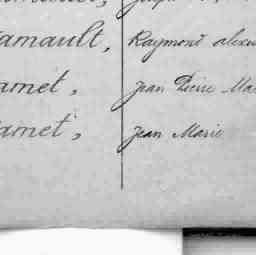 amault, Raymond alexa
amet, Jean Pierre Ma
amet, Jean Marie